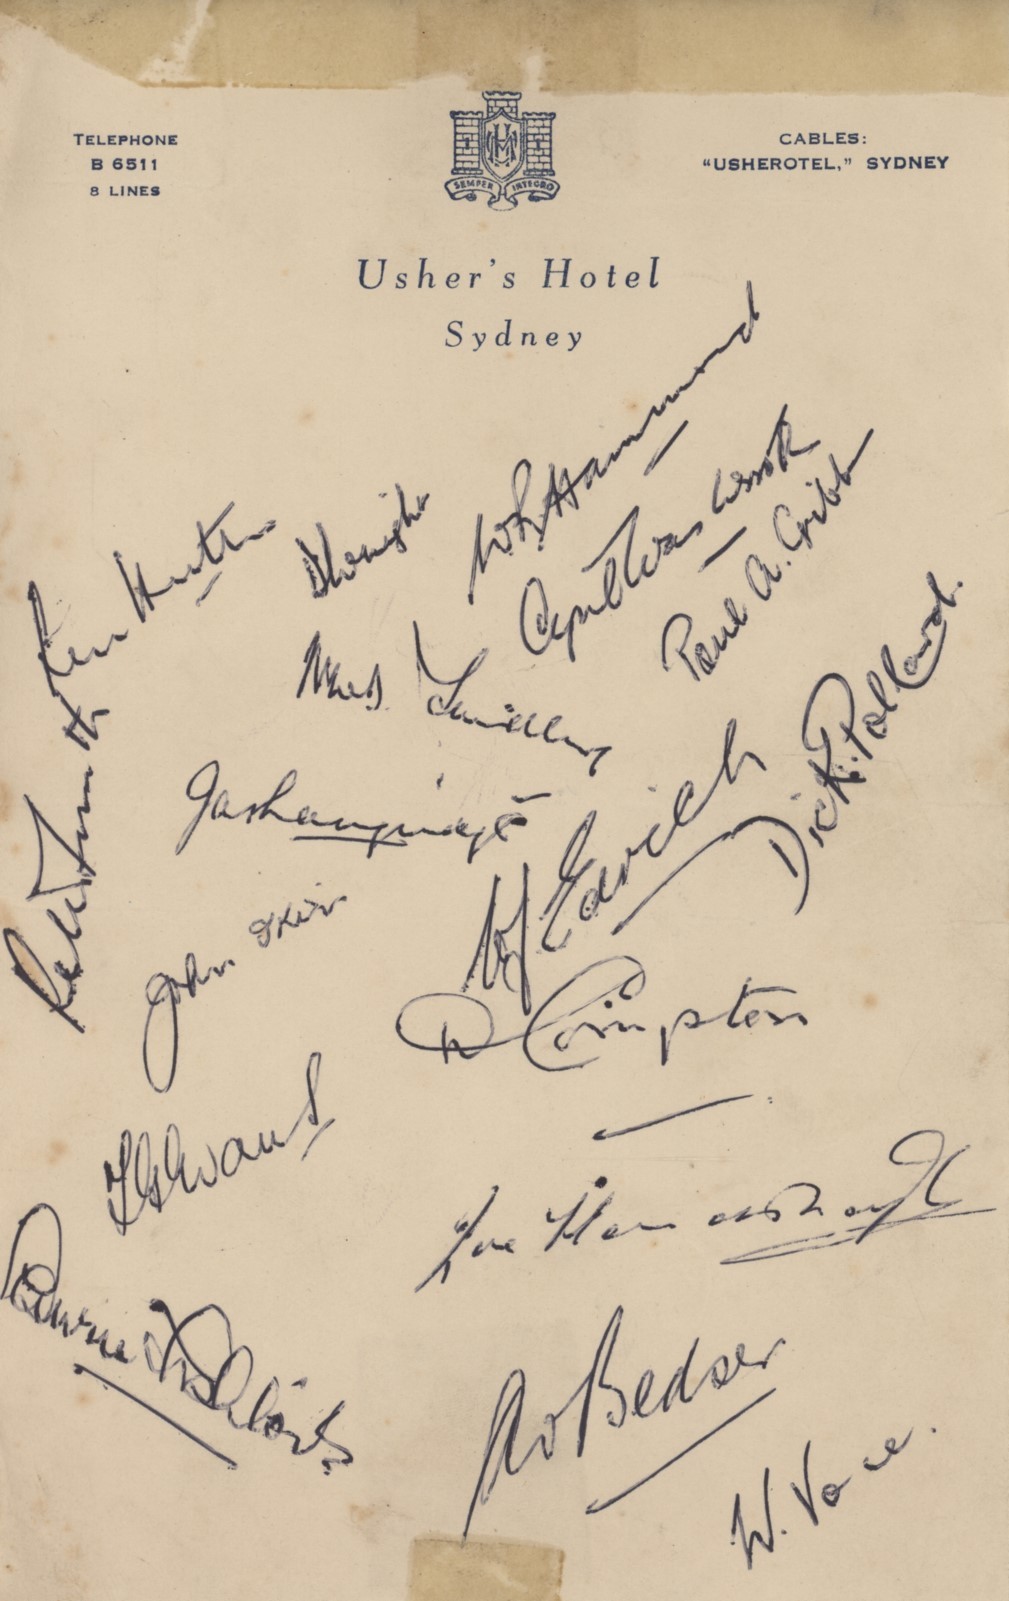 TELEPHONE
B 6511
8 LINES
SEMPER INTEGRO
CABLES:
"USHEROTEL," SYDNEY
Usher's Hotel
Sydney
WR Hammond
Len Hutton
Cyril Washbrook
Paul A. Gibb
James Langridge
Dick. Pollard.
WJ Edrich
John Ikin
D Compton
TG Evans
Joe Hardstaff
AV Bedser
W. Voce.